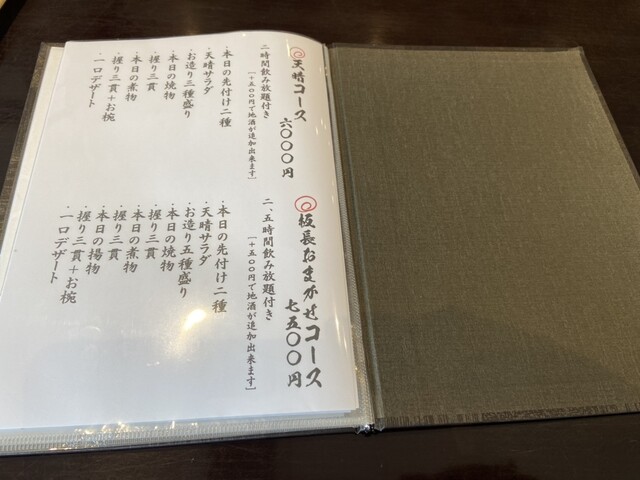 天晴コース
六〇〇〇円
二時間飲み放題付き
[+五〇〇円で地酒が追加出来ます]
・本日の先付け二種
・天晴サラダ
・お造り三種盛り
・本日の焼物
・握り三貫
・本日の煮物
・握り三貫+お椀
・一口デザート
板長おまかせコース
七五〇〇円
二、五時間飲み放題付き
[+五〇〇円で地酒が追加出来ます]
・本日の先付け二種
・天晴サラダ
・お造り五種盛り
・本日の焼物
・握り三貫
・本日の煮物
・握り三貫
・本日の揚物
・握り三貫+お椀
・一口デザート